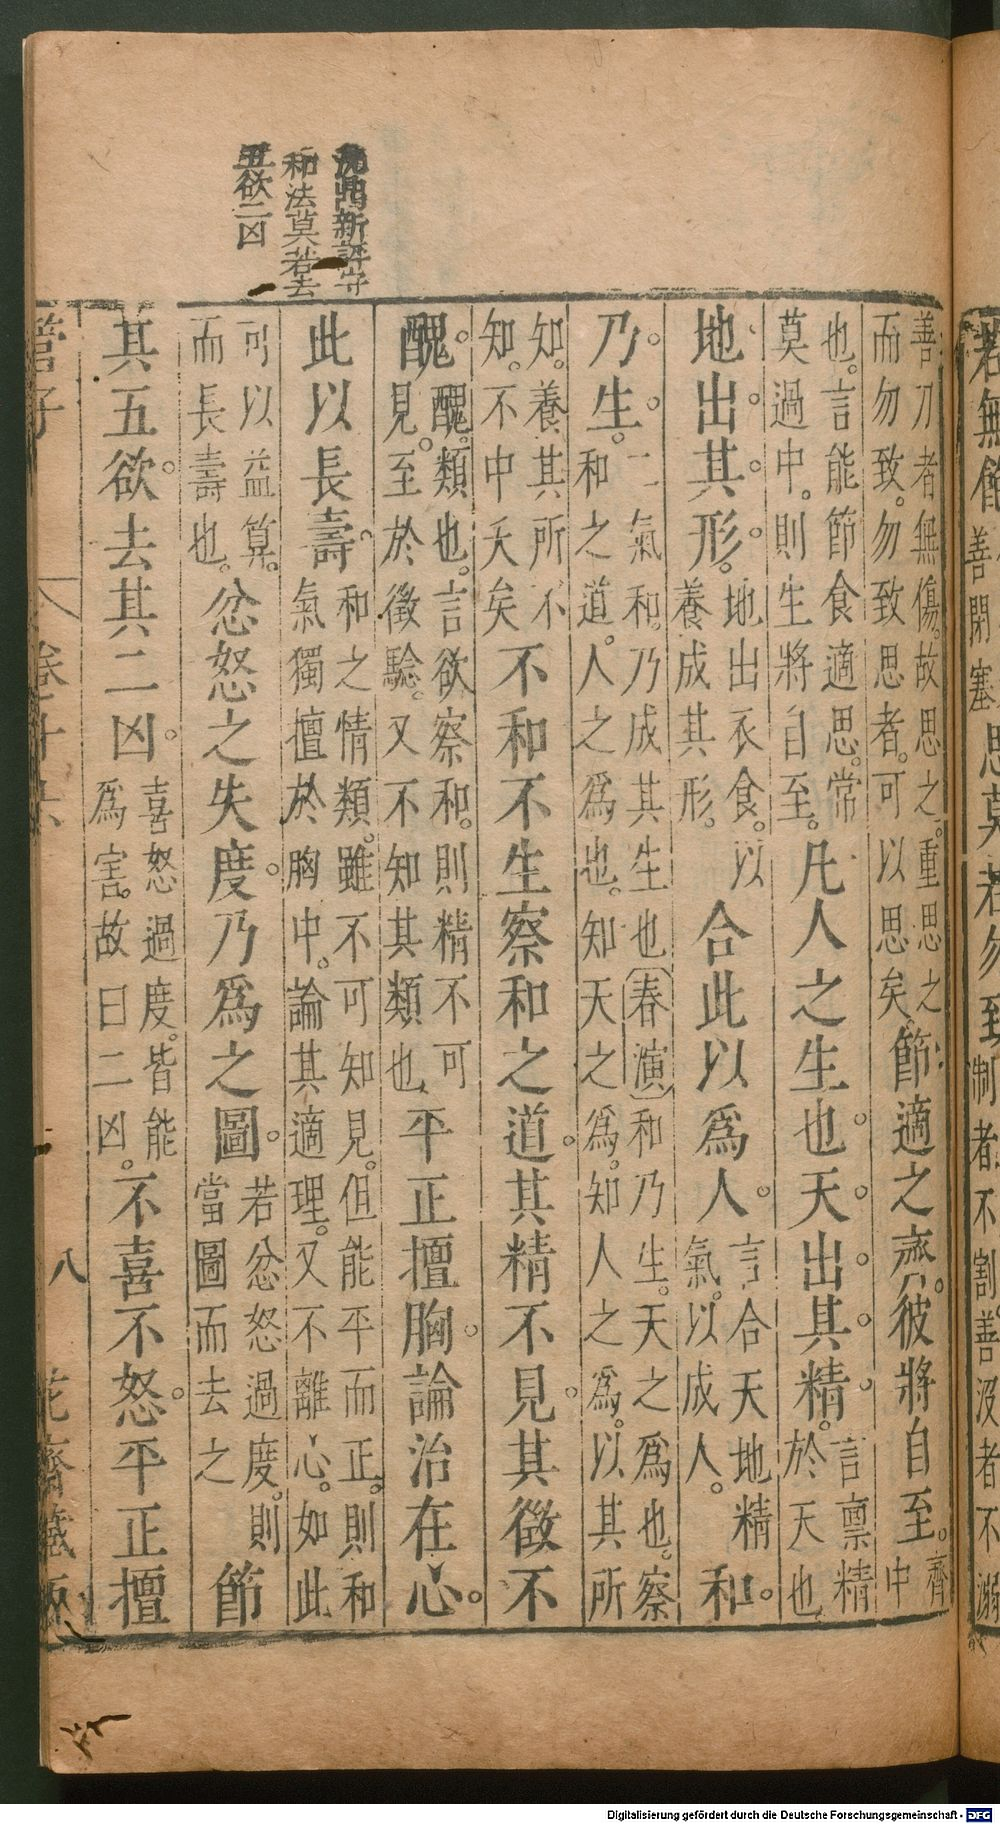 若無
善閉塞
思莫若勿致
制者不割善沒者不溺
善刀者無傷故思之重思之
而勿致勿致思者可以思矣
節適之齊彼將自至
齊
中
也言能節食適思常
莫過中則生將自至
凡人之生也天出其精
言禀精
於天也
地出其形
地出衣食以
養成其形
合此以爲人
言合天地精
氣以成人
和
乃生
二氣和乃成其生也春演和乃生天之爲也察
和之道人之爲也知天之爲知人之爲以其所
知養其所不
知不中夭矣
不和不生察和之道其精不見其徵不
醜
醜類也言欲察和則精不可
見至於徵驗又不知其類也
平正擅胸論治在心
此以長壽
和之情類雖不可知見但能平而正則和
氣獨擅於胸中論其適理又不離心如此
可以益算
而長壽也
忿怒之失度乃爲之圖
若忿怒過度則
當圖而去之
節
其五欲去其二凶
喜怒過度皆能
爲害故曰二凶
不喜不怒平正擅
沈鼎新評守
和法莫若去
五欲二凶
管子
卷十六
八
花齋藏板
Digitalisierung gefördert durch die Deutsche Forschungsgemeinschaft - DFG